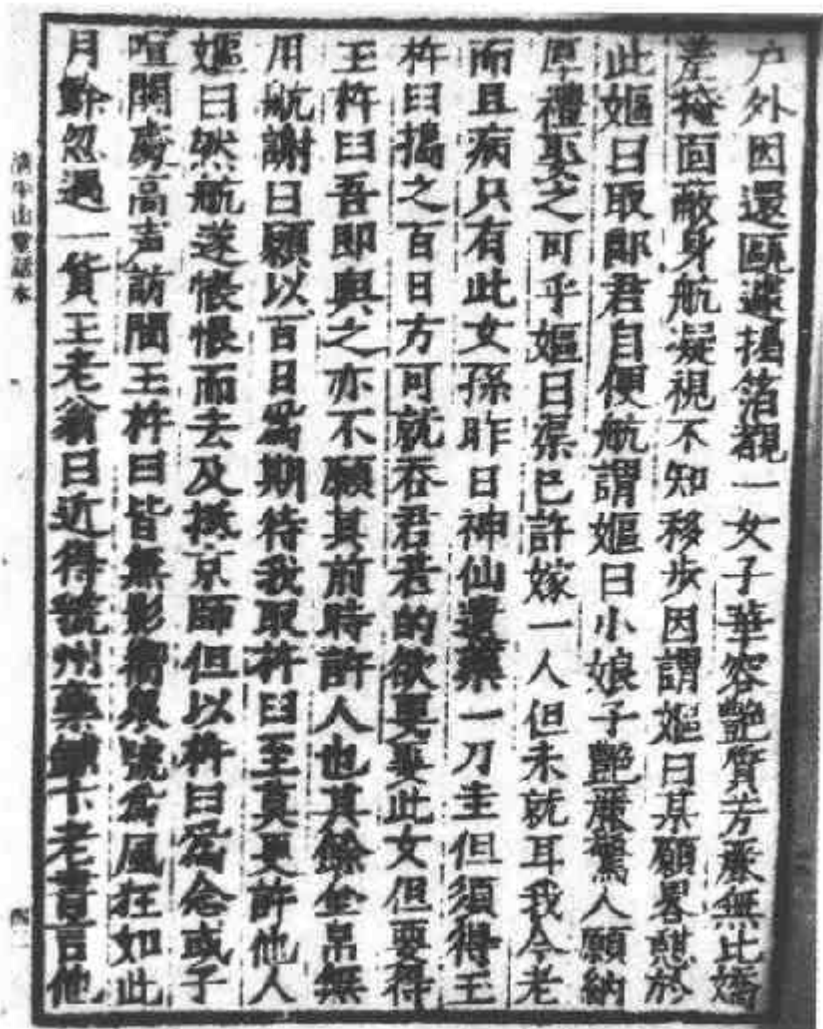 户外因還甌遽揭箔覩一女子華容艷質芳麗無比嬌
羞掩面蔽身航凝視不知移步因謂嫗曰某願畧憇於
此嫗曰取郎君自便航謂嫗曰小娘子艷麗驚人願納
厚禮娶之可乎嫗曰渠已許嫁一人但未就耳我今老
而且病只有此女孫昨日神仙遺藥一刀圭但須得玉
杵臼搗之百日方可就吞君若的欲更娶此女但要得
玉杵臼吾即與之亦不願其前時許人也其餘金帛無
用航謝曰願以百日爲期待我取杵臼至莫更許他人
嫗曰然航遂悵恨而去及抵京師但以杵臼爲念或于
喧鬧處高声訪問玉杵臼皆無影響衆號爲風狂如此
月餘忽遇一貨玉老翁曰近得虢州藥鋪卞老書言他
清平山堂話本